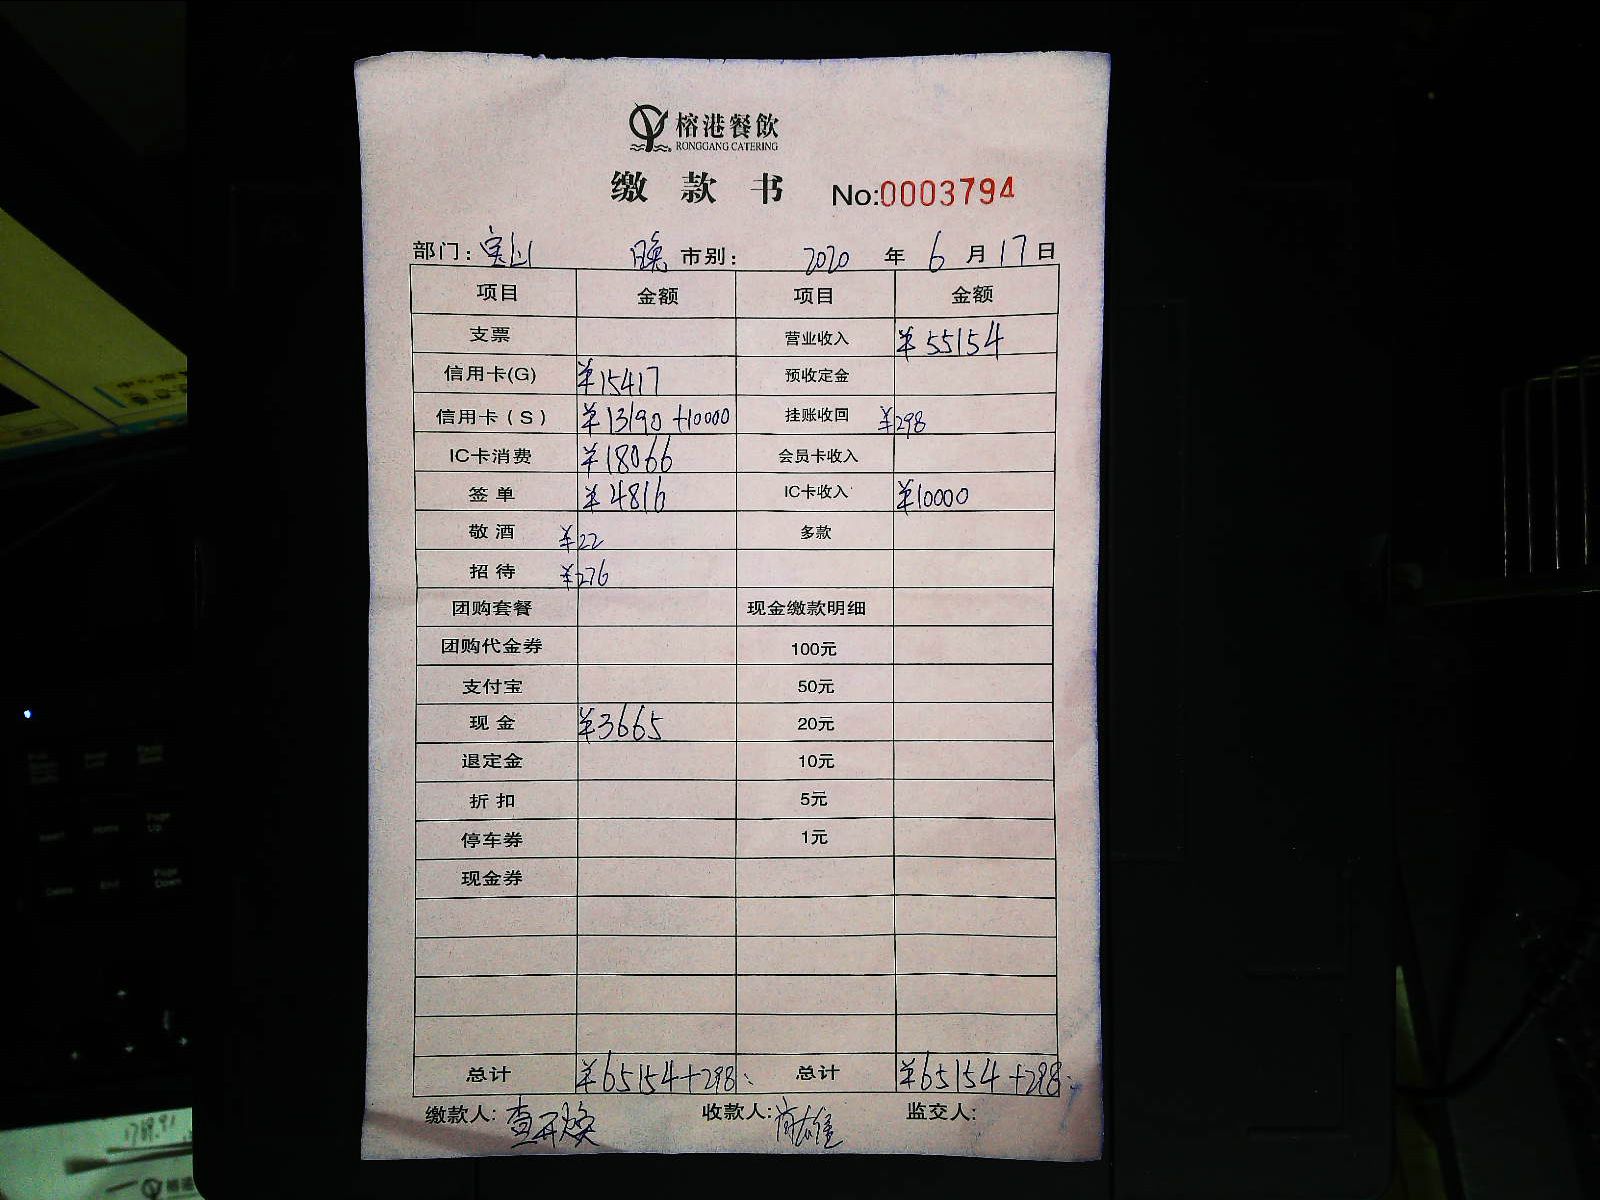 榕港餐飲
RONGGANG CATERING
缴款书 No:0003794
部门: 宝山 晚 市别: 2020 年 6 月 17 日
项目 金额 项目 金额
支票 营业收入 ¥55154
信用卡(G) ¥15417 预收定金
信用卡(S) ¥13190+10000 挂账收回 ¥298
IC卡消费 ¥18066 会员卡收入
签单 ¥4816 IC卡收入 ¥10000
敬酒 ¥22 多款
招待 ¥276
团购套餐 现金缴款明细
团购代金券 100元
支付宝 50元
现金 ¥3665 20元
退定金 10元
折扣 5元
停车券 1元
现金券
总计 ¥65154+298 总计 ¥65154+298
缴款人: 收款人: 监交人:
Home
Page Up
Delete
End
Page Down